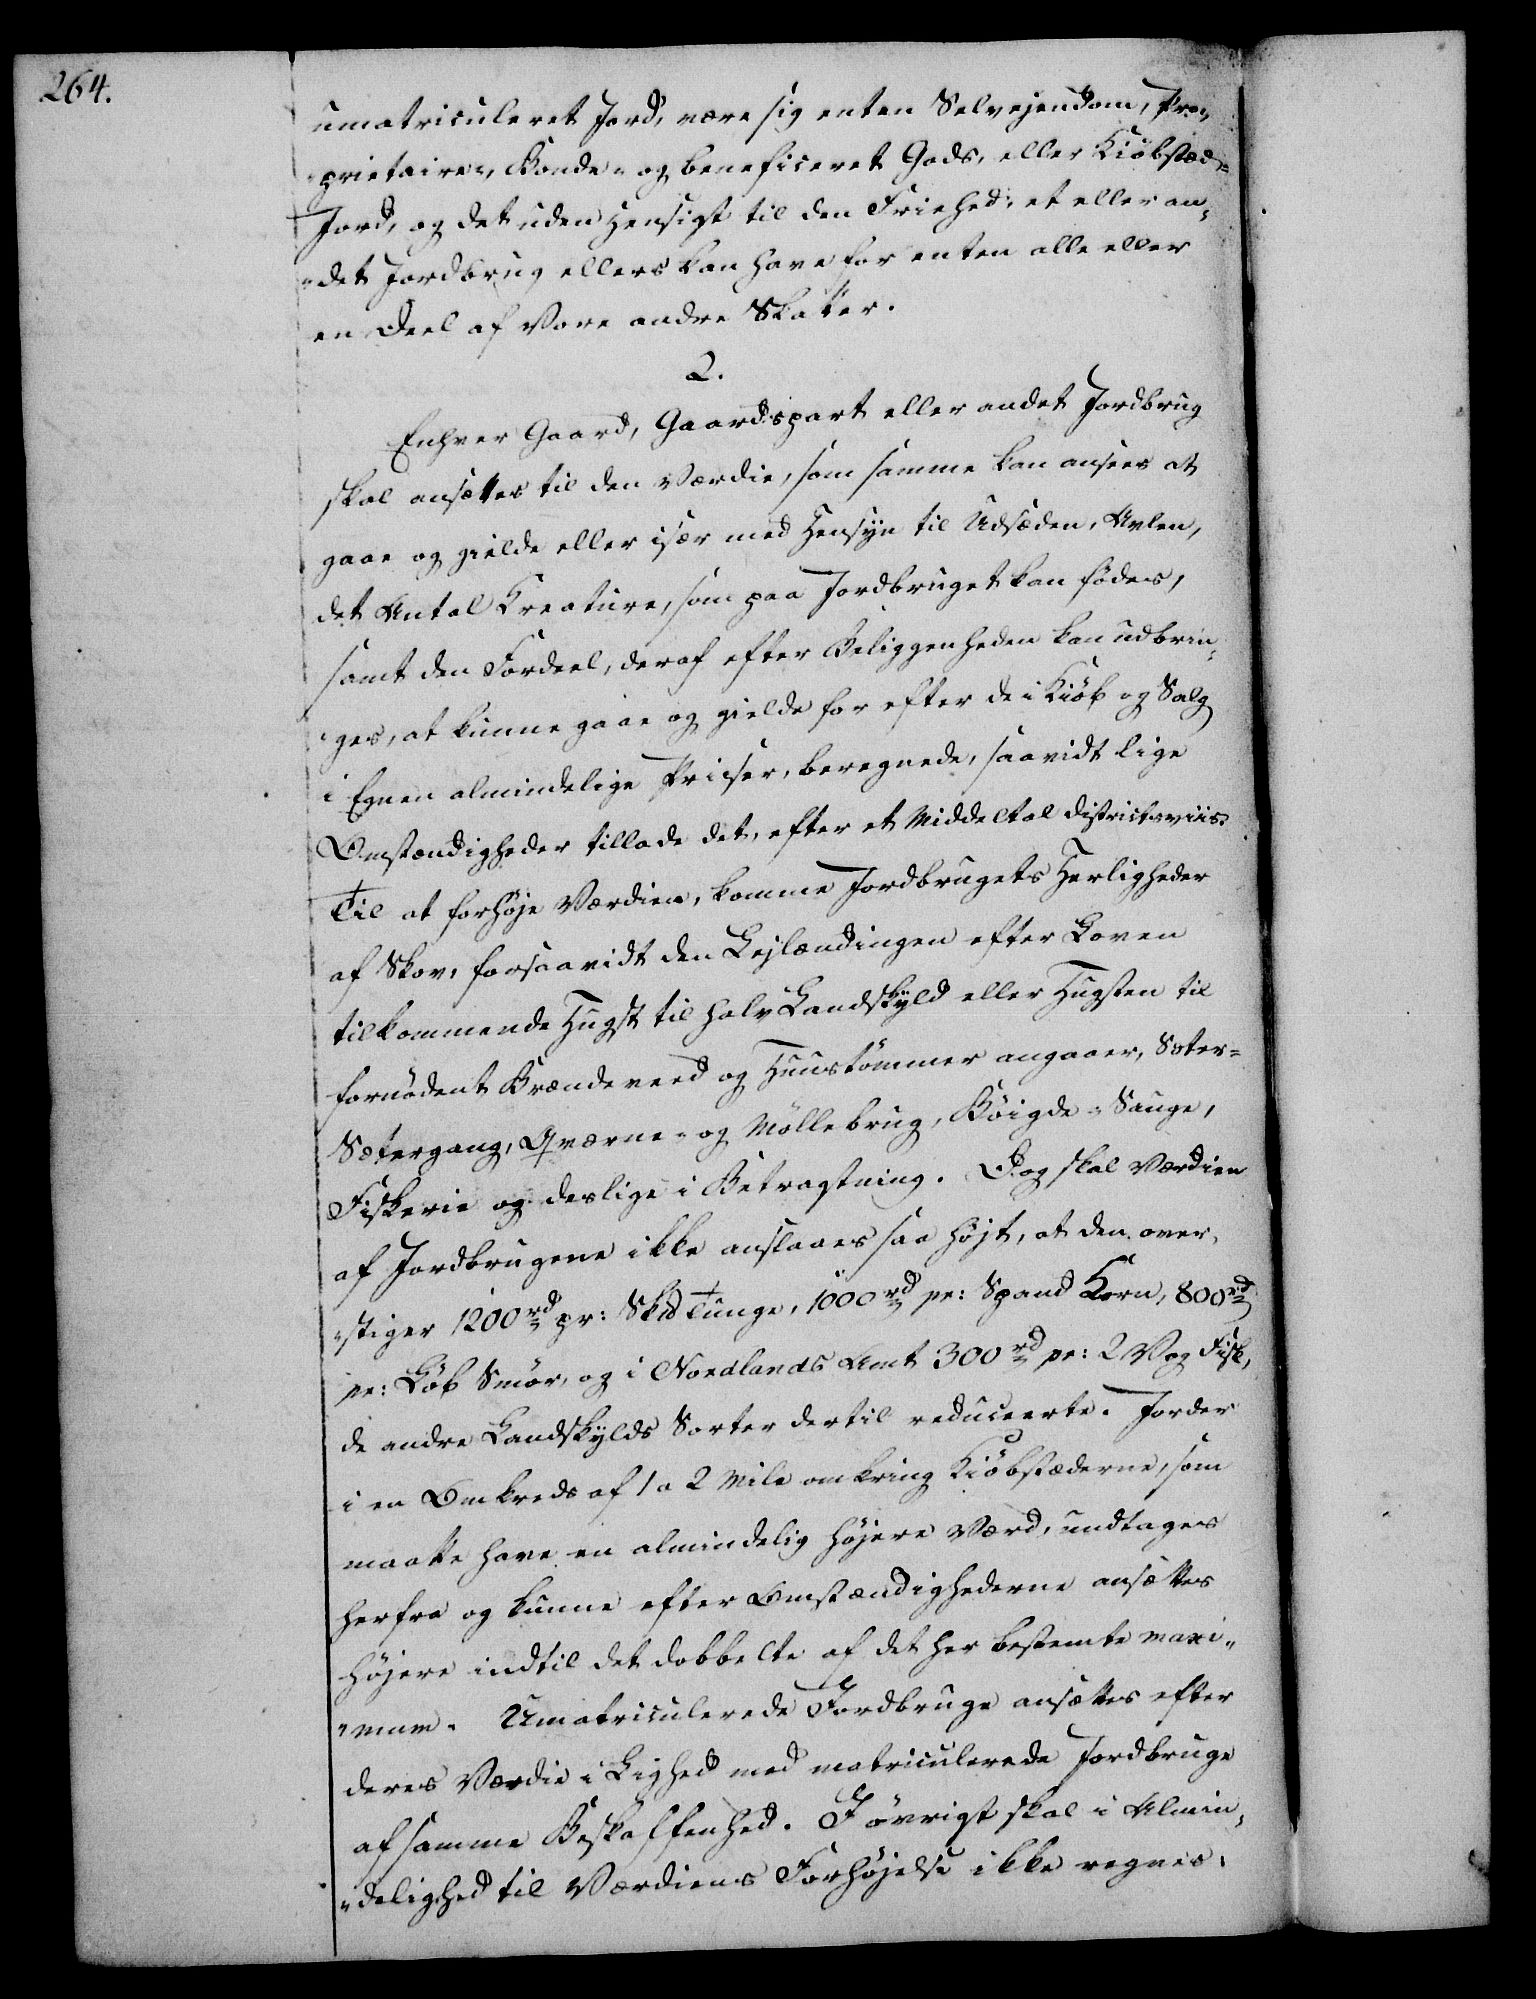 264.
umatriculeret Jord, være sig enten Selvejendom, Pro„
„prietaire„, Bonde„ og beneficeret Gods, eller Kiöbstæd„
Jord, og det uden Hensigt til den Friehed, et eller an„
„det Jordbrug ellers kan have for enten alle eller
en Deel af Vore andre Skatter.
2.
Enhver Gaard, Gaardspart eller andet Jordbrug
skal ansættes til den Værdie, som samme kan ansees at
gaae og gielde eller især med Hensÿn til Udsæden, Avlen,
det Antal Kreature, som paa Jordbruget kan födes,
samt den Fordeel, deraf efter Beliggenheden kan udbrin„
„ges, at kunne gaae og gielde for efter de i Kiöb og Salg
i Egnen almindelige Priser, beregnede, saavidt lige
Omstændigheder tillade det, efter et Middeltal districtsviis.
Til at forhöje Værdien, komme Jordbrugets Herligheder
af Skov, forsaavidt den Lejlændingen efter Loven
tilkommende Hugst til halv Landskÿld eller Hugsten til
fornödent Brændeveed og Huustömmer angaaer, Sæter„
Sætergang, Qværne„ og Möllebrug, Böigde„Sauge,
Fiskerie og deslige i Betragtning. Dog skal Værdien
af Jordbrugene ikke anslaaes saa höjt, at den over„
„stiger 1200 rd pr: Skd Tunge, 1000 rd pr: Spand Korn, 800 rd
pr: Löb Smör, og i Nordlands Amt 300 rd pr: 2 Vog Fisk,
de andre Landskÿlds Sorter dertil reduceerte. Jorder
i en Omkreds af 1 a 2 Mile omkring Kiöbstæderne, som
maatte have en almindelig höjere Værd, undtages
herfra og kunne efter Omstændighederne ansættes
höjere indtil det dobbelte af det her bestemte maxi„
„mum. Umatriculerede Jordbruge ansættes efter
deres Værdie i Lighed med matriculerede Jordbruge
af samme Beskaffenhed. I övrigt skal i Almin„
„delighed til Værdiens Forhöjelse ikke regnes,